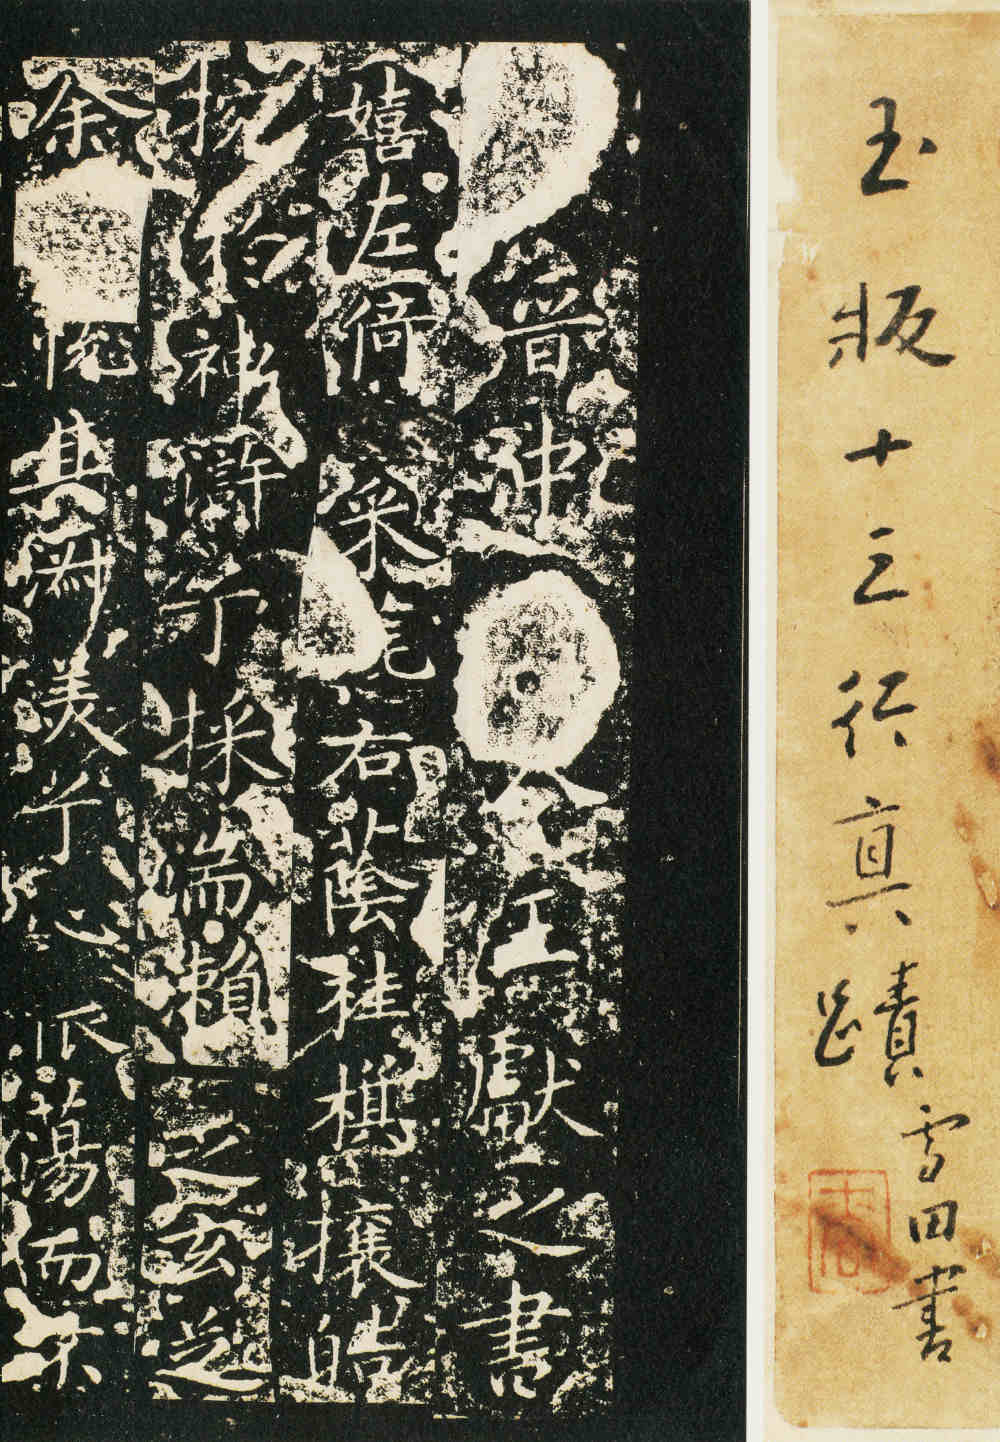 玉版十三行真蹟
雪田書
晉中令王獻之書
嬉左倚采旄右蔭桂旗攘皓
捥於神滸兮採湍瀨之玄芝
余悅其淑美兮心振蕩而不